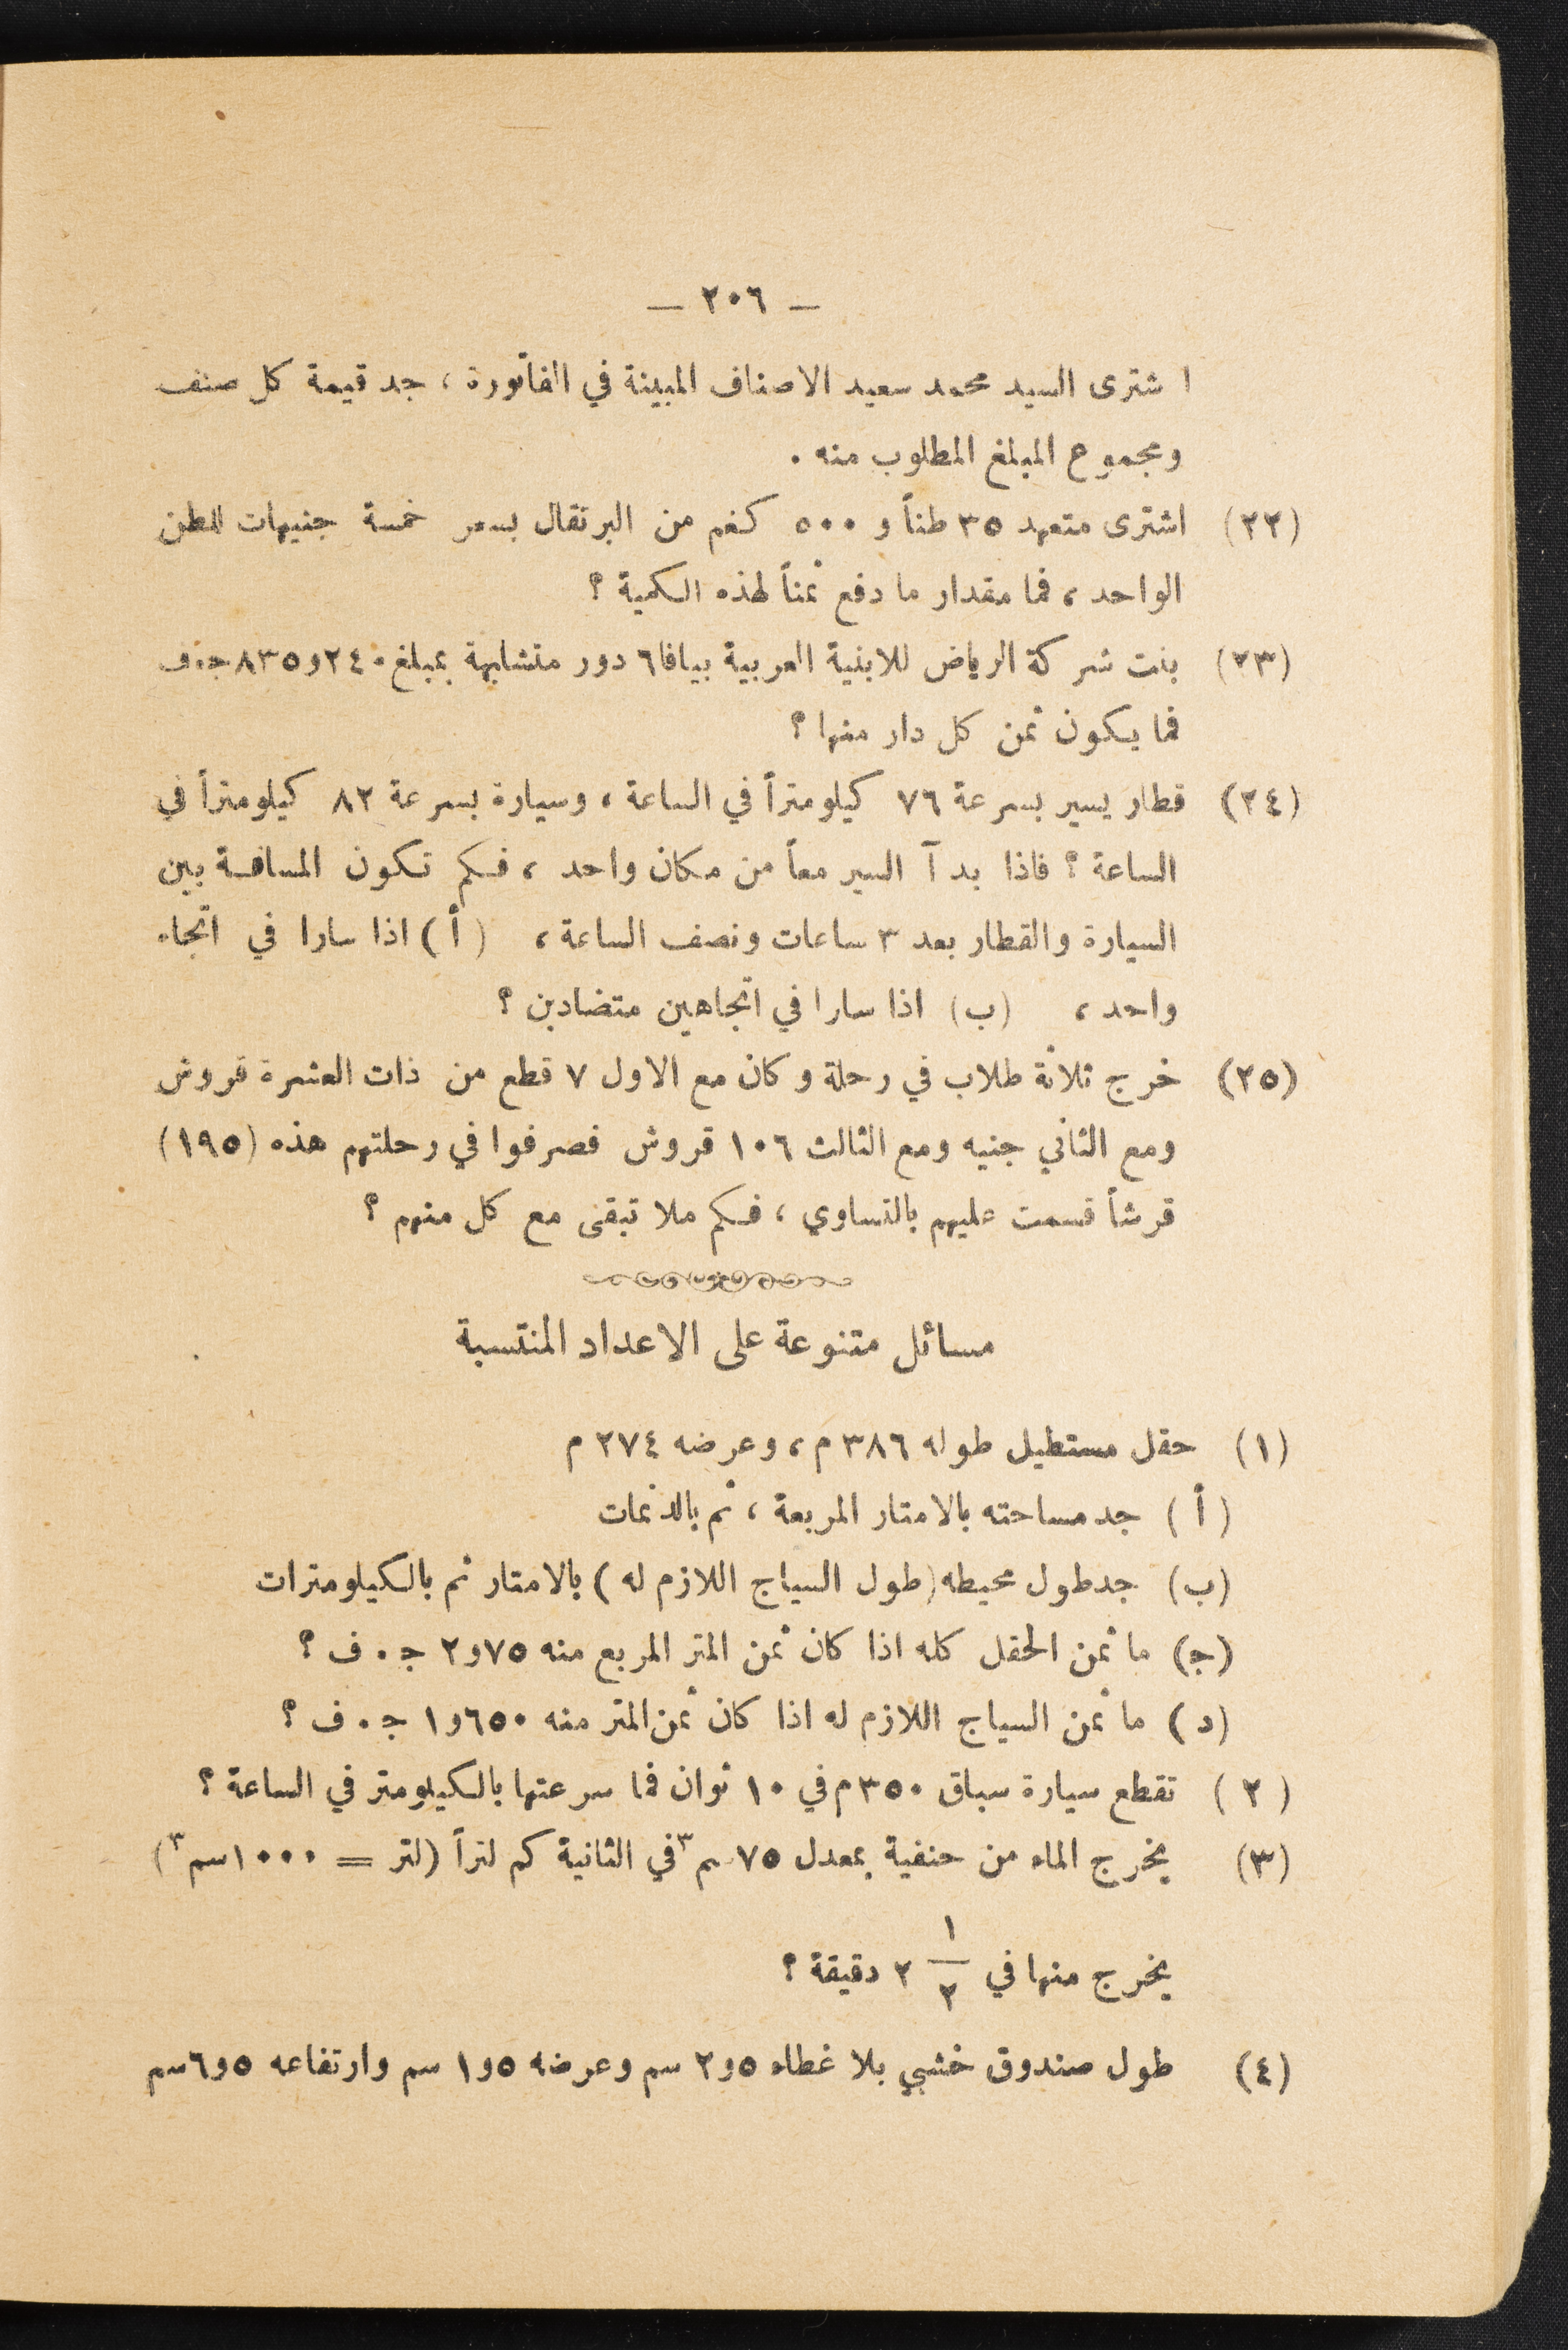 — ٢٠٦ —
اشترى السيد محمد سعيد الاصناف المبينة في الفاتورة ، جد قيمة كل صنف
ومجموع المبلغ المطلوب منه .
(٢٢) اشترى متعهد ٣٥ طناً و ٥٠٠ كغم من البرتقال بسعر خمسة جنيهات للطن
الواحد ، فما مقدار ما دفع ثمناً لهذه الكمية ؟
(٢٣) بنت شركة الرياض للابنية العربية بيافا ٦ دور متشابهة بمبلغ ٢٤٠و٨٣٥ ج.ف
فما يكون ثمن كل دار منها ؟
(٢٤) قطار يسير بسرعة ٧٦ كيلومتراً في الساعة ، وسيارة بسرعة ٨٢ كيلومتراً في
الساعة ؟ فاذا بدآ السير معاً من مكان واحد ، فكم تكون المسافة بين
السيارة والقطار بعد ٣ ساعات ونصف الساعة ، (أ) اذا سارا في اتجاه
واحد ، (ب) اذا سارا في اتجاهين متضادين ؟
(٢٥) خرج ثلاثة طلاب في رحلة وكان مع الاول ٧ قطع من ذات العشرة قروش
ومع الثاني جنيه ومع الثالث ١٠٦ قروش فصرفوا في رحلتهم هذه (١٩٥)
قرشاً قسمت عليهم بالتساوي ، فكم ملا تبقى مع كل منهم ؟
مسائل متنوعة على الاعداد المنتسبة
(١) حقل مستطيل طوله ٣٨٦ م ، وعرضه ٢٧٤ م
(أ) جد مساحته بالامتار المربعة ، ثم بالدنمات
(ب) جد طول محيطه (طول السياج اللازم له) بالامتار ثم بالكيلومترات
(ج) ما ثمن الحقل كله اذا كان ثمن المتر المربع منه ٧٥و٢ ج . ف ؟
(د) ما ثمن السياج اللازم له اذا كان ثمن المتر منه ٦٥٠و١ ج . ف ؟
(٢) تقطع سيارة سباق ٣٥٠ م في ١٠ ثوان فما سرعتها بالكيلومتر في الساعة ؟
(٣) يخرج الماء من حنفية بمعدل ٧٥ سم٣ في الثانية كم لتراً (لتر = ١٠٠٠ سم٣)
يخرج منها في ١/٢ ٢ دقيقة ؟
(٤) طول صندوق خشبي بلا غطاء ٥و٢ سم وعرضه ٥و١ سم وارتفاعه ٥و٦ سم